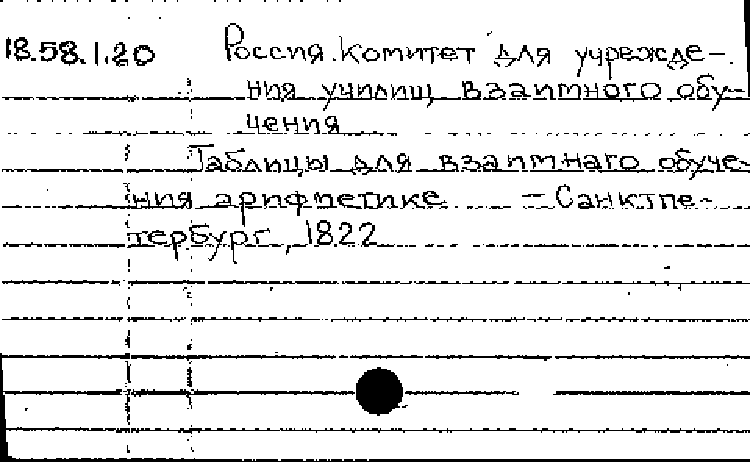 18.58.1.20 Россия. Комитет для учрежде-
ния училищ взаимного обу-
чения
Таблицы для взаимнаго обуче-
ния арифметике - Санктпе-
тербург, 1822